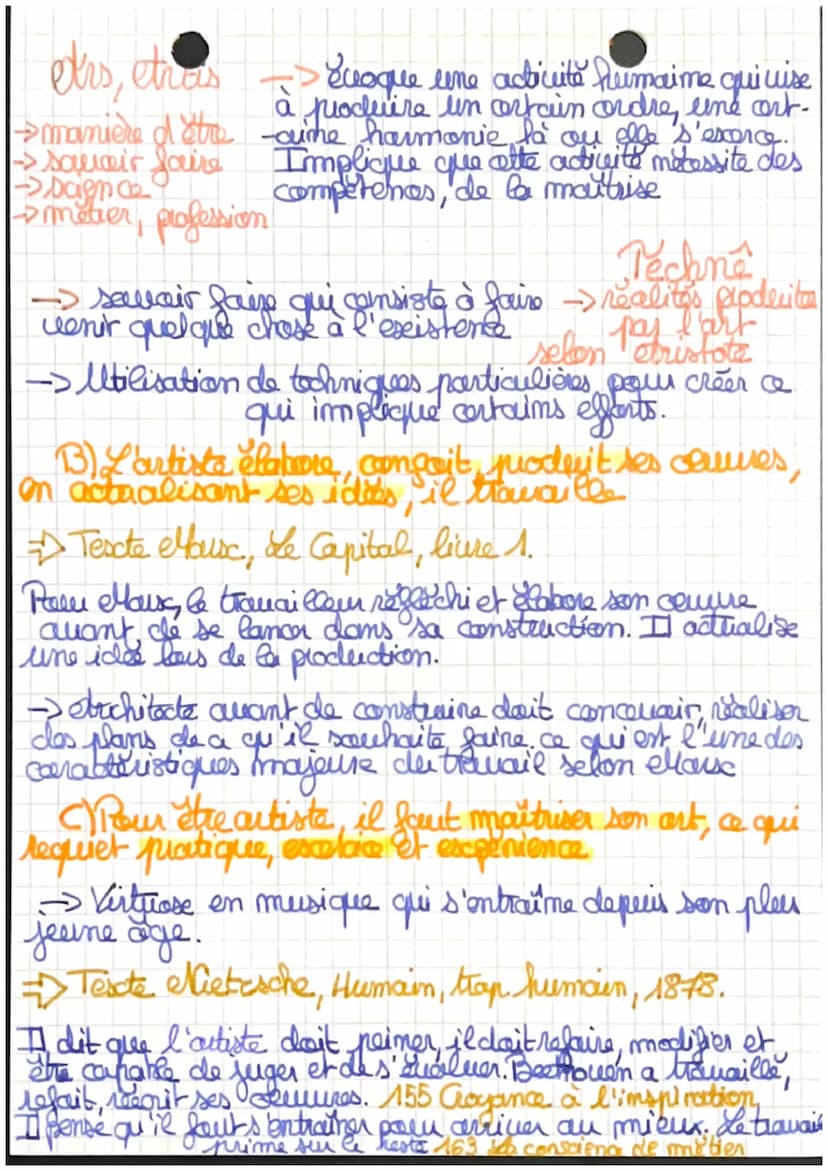 Ars, artis
→ manière d'être
→ savoir faire
→ science
→ métier, profession
→ évoque une activité humaine qui vise
à produire un certain ordre, une cert-
aine harmonie là où elle s'exerce.
Implique que cette activité nécessite des
compétences, de la maîtrise
Technê
→ savoir faire qui consiste à faire
venir quelque chose à l'existence
→ réalités produites
par l'art
selon Aristote
→ Utilisation de techniques particulières pour créer ce
qui implique certains efforts.
B) L'artiste élabore, conçoit, produit ses œuvres,
en actualisant ses idées, il travaille
⇒ Texte Marx, Le Capital, livre 1.
Pour Marx, le travailleur réfléchi et élabore son œuvre
avant de se lancer dans sa construction. Il actualise
une idée lors de la production.
→ Architecte avant de construire doit concevoir, réaliser
des plans de ce qu'il souhaite faire ce qui est l'une des
caractéristiques majeure du travail selon Marx
C) Pour être artiste, il faut maîtriser son art, ce qui
requiet pratique, exercice et expérience
→ Virtuose en musique qui s'entraîne depuis son plus
jeune âge.
⇒ Texte Nietzsche, Humain, trop humain, 1878.
Il dit que l'artiste doit peiner, il doit refaire, modifier et
être capable de juger et de s'évaluer. Beethoven a travaillé,
refait, réécrit ses œuvres. 155 Croyance à l'inspiration
Il pense qu'il faut s'entraîner pour arriver au mieux. Le travail
prime sur le reste 163 La conscience de métier